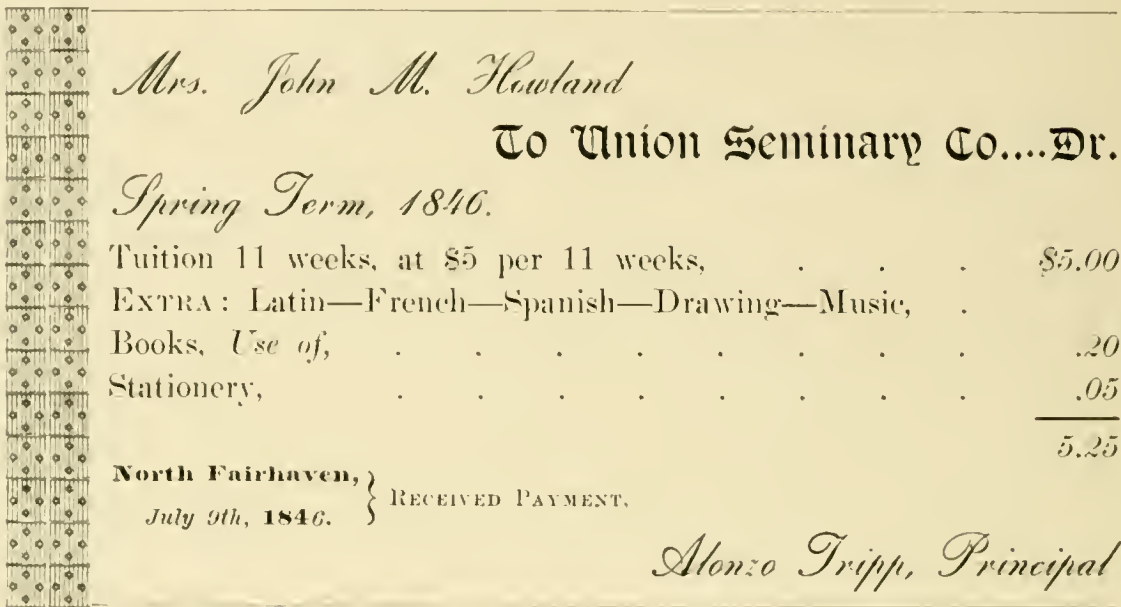 Mrs. John M. Howland
To Union Seminary Co....Dr.
Spring Term, 1846.
Tuition 11 weeks, at $5 per 11 weeks, . . . $5.00
EXTRA: Latin—French—Spanish—Drawing—Music, .
Books, Use of, . . . . . . . . .20
Stationery, . . . . . . . .05
5.25
North Fairhaven,
July 9th, 1846. } RECEIVED PAYMENT,
Alonzo Tripp, Principal